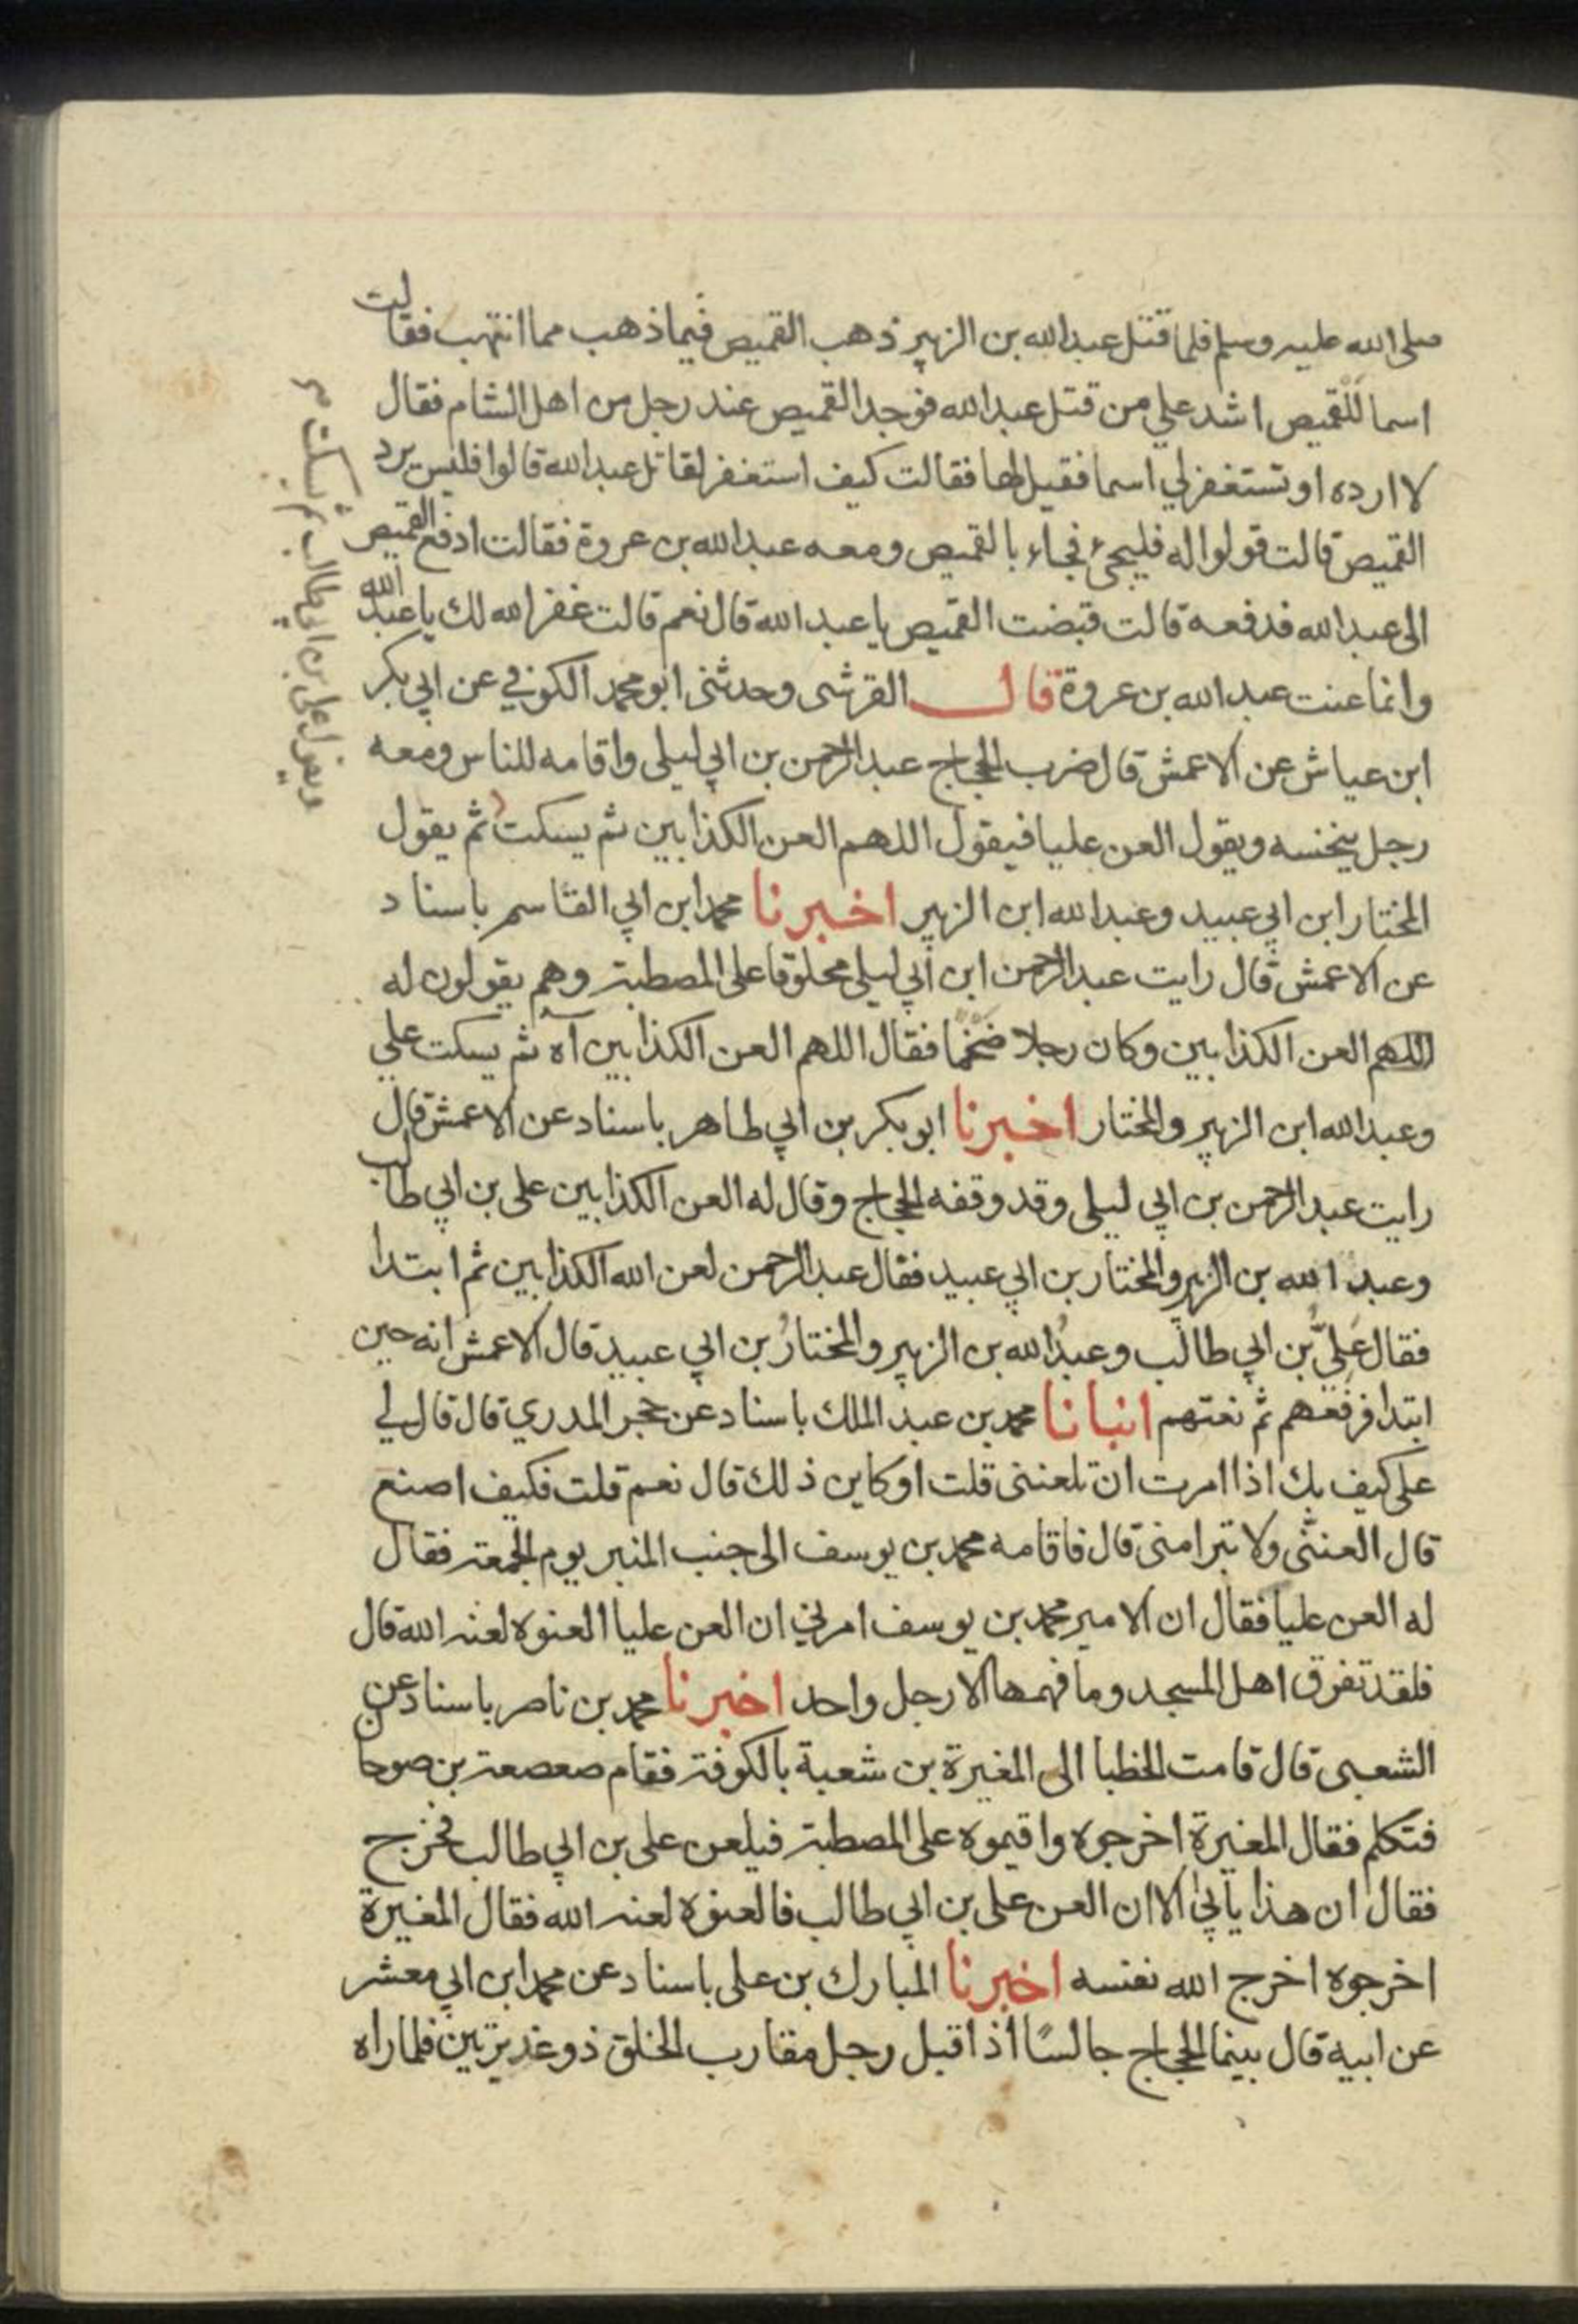 صلى الله عليه وسلم فلما قتل عبدالله بن الزبير ذهب القميص فيما ذهب مما انتهب فقالت
اسما للقميص اشد علي من قتل عبدالله فوجد القميص عند رجل من اهل الشام فقال
لا ارده او تستغفر لي اسما فقيل لها فقالت كيف استغفر لقاتل عبدالله قالوا فليس يرد
القميص قالت قولوا له فليجئ فجاء بالقميص ومعه عبدالله بن عروة فقالت ادفع القميص
الى عبدالله فدفعه قالت قبضت القميص يا عبدالله قال نعم قالت غفر الله لك يا عبدالله
وانما عنت عبدالله بن عروة قال القرشى وحدثنى ابو محمد الكوفي عن ابي بكر
ابن عياش عن الاعمش قال ضرب الحجاج عبدالرحمن بن ابي ليلى واقامه للناس ومعه
رجل ينخسه ويقول العن عليا فيقول اللهم العن الكذابين ثم يسكت ثم يقول
المختار ابن ابي عبيد وعبدالله ابن الزبير اخبرنا محمد ابن ابي القاسم باسناد
عن الاعمش قال رايت عبدالرحمن ابن ابي ليلى محلوقا على المصطبة وهم يقولون له
اللهم العن الكذابين وكان رجلا ضخما فقال اللهم العن الكذابين آه ثم يسكت علي
وعبدالله ابن الزبير والمختار اخبرنا ابو بكر بن ابي طاهر باسناد عن الاعمش قال
رايت عبدالرحمن بن ابي ليلى وقد وقفه الحجاج وقال له العن الكذابين على بن ابي طالب
وعبد الله بن الزبير والمختار بن ابي عبيد فقال عبدالرحمن لعن الله الكذابين ثم ابتدا
فقال عَلِيُّ بن ابي طالب وعبدُالله بن الزبير والمختارُ بن ابي عبيد قال الاعمش انه حين
ابتدا فرفعهم ثم نعتهم انبانا محمد بن عبد الملك باسناد عن حجر المدري قال قال لي
على كيف بك اذا امرت ان تلعننى قلت اوكاين ذلك قال نعم قلت فكيف اصنع
قال العننى ولا تبرا منى قال فاقامه محمد بن يوسف الى جنب المنبر يوم الجمعة فقال
له العن عليا فقال ان الامير محمد بن يوسف امرني ان العن عليا العنوه لعنه الله قال
فلقد تفرق اهل المسجد وما فهمها الا رجل واحد اخبرنا محمد بن ناصر باسناد عن
الشعبى قال قامت الخطبا الى المغيرة بن شعبة بالكوفة فقام صعصعة بن صوحا
فتكلم فقال المغيرة اخرجوه واقيموه على المصطبة فيلعن على بن ابي طالب فخرج
فقال ان هذا يأبي الا ان العن على بن ابي طالب فالعنوه لعنه الله فقال المغيرة
اخرجوه اخرج الله نفسه اخبرنا المبارك بن على باسناد عن محمد ابن ابي معشر
عن ابيه قال بينما الحجاج جالسًا اذ اقبل رجل مقارب الخلق ذو غديرتين فلما راه
ويقول على بن ابي طالب ثم يسكت